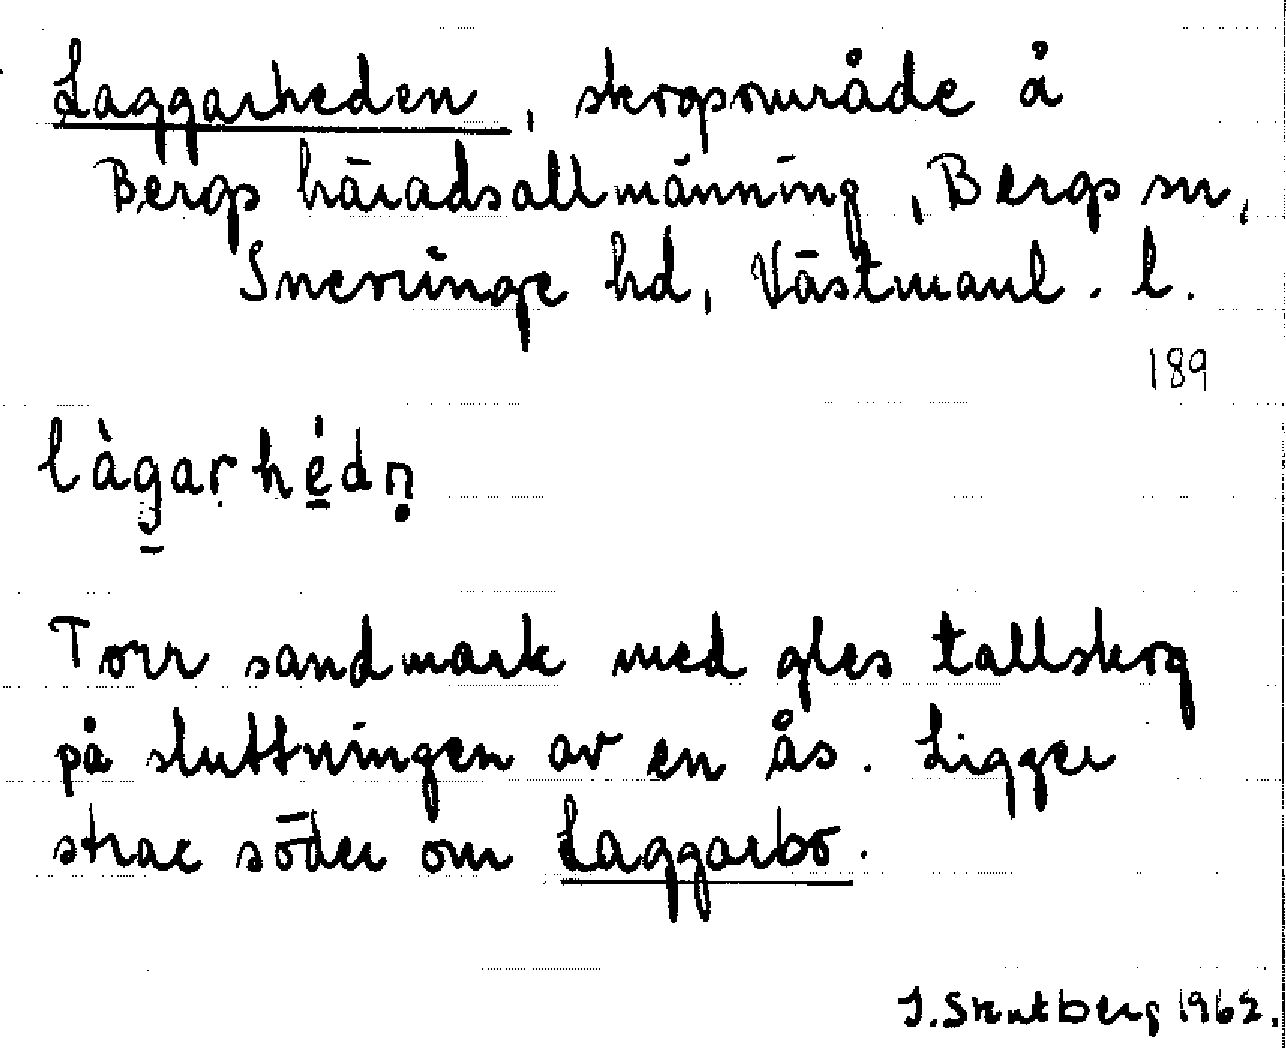 Laggarheden, skogsområde å
Bergs häradsallmänning, Bergs sn,
Snevringe hd, Västmanl. l.
189
làgarhédn̥
Torr sandmark med gles tallskog
på sluttningen av en ås. Ligger
strax söder om Laggarbo.
J. Stutberg 1962.